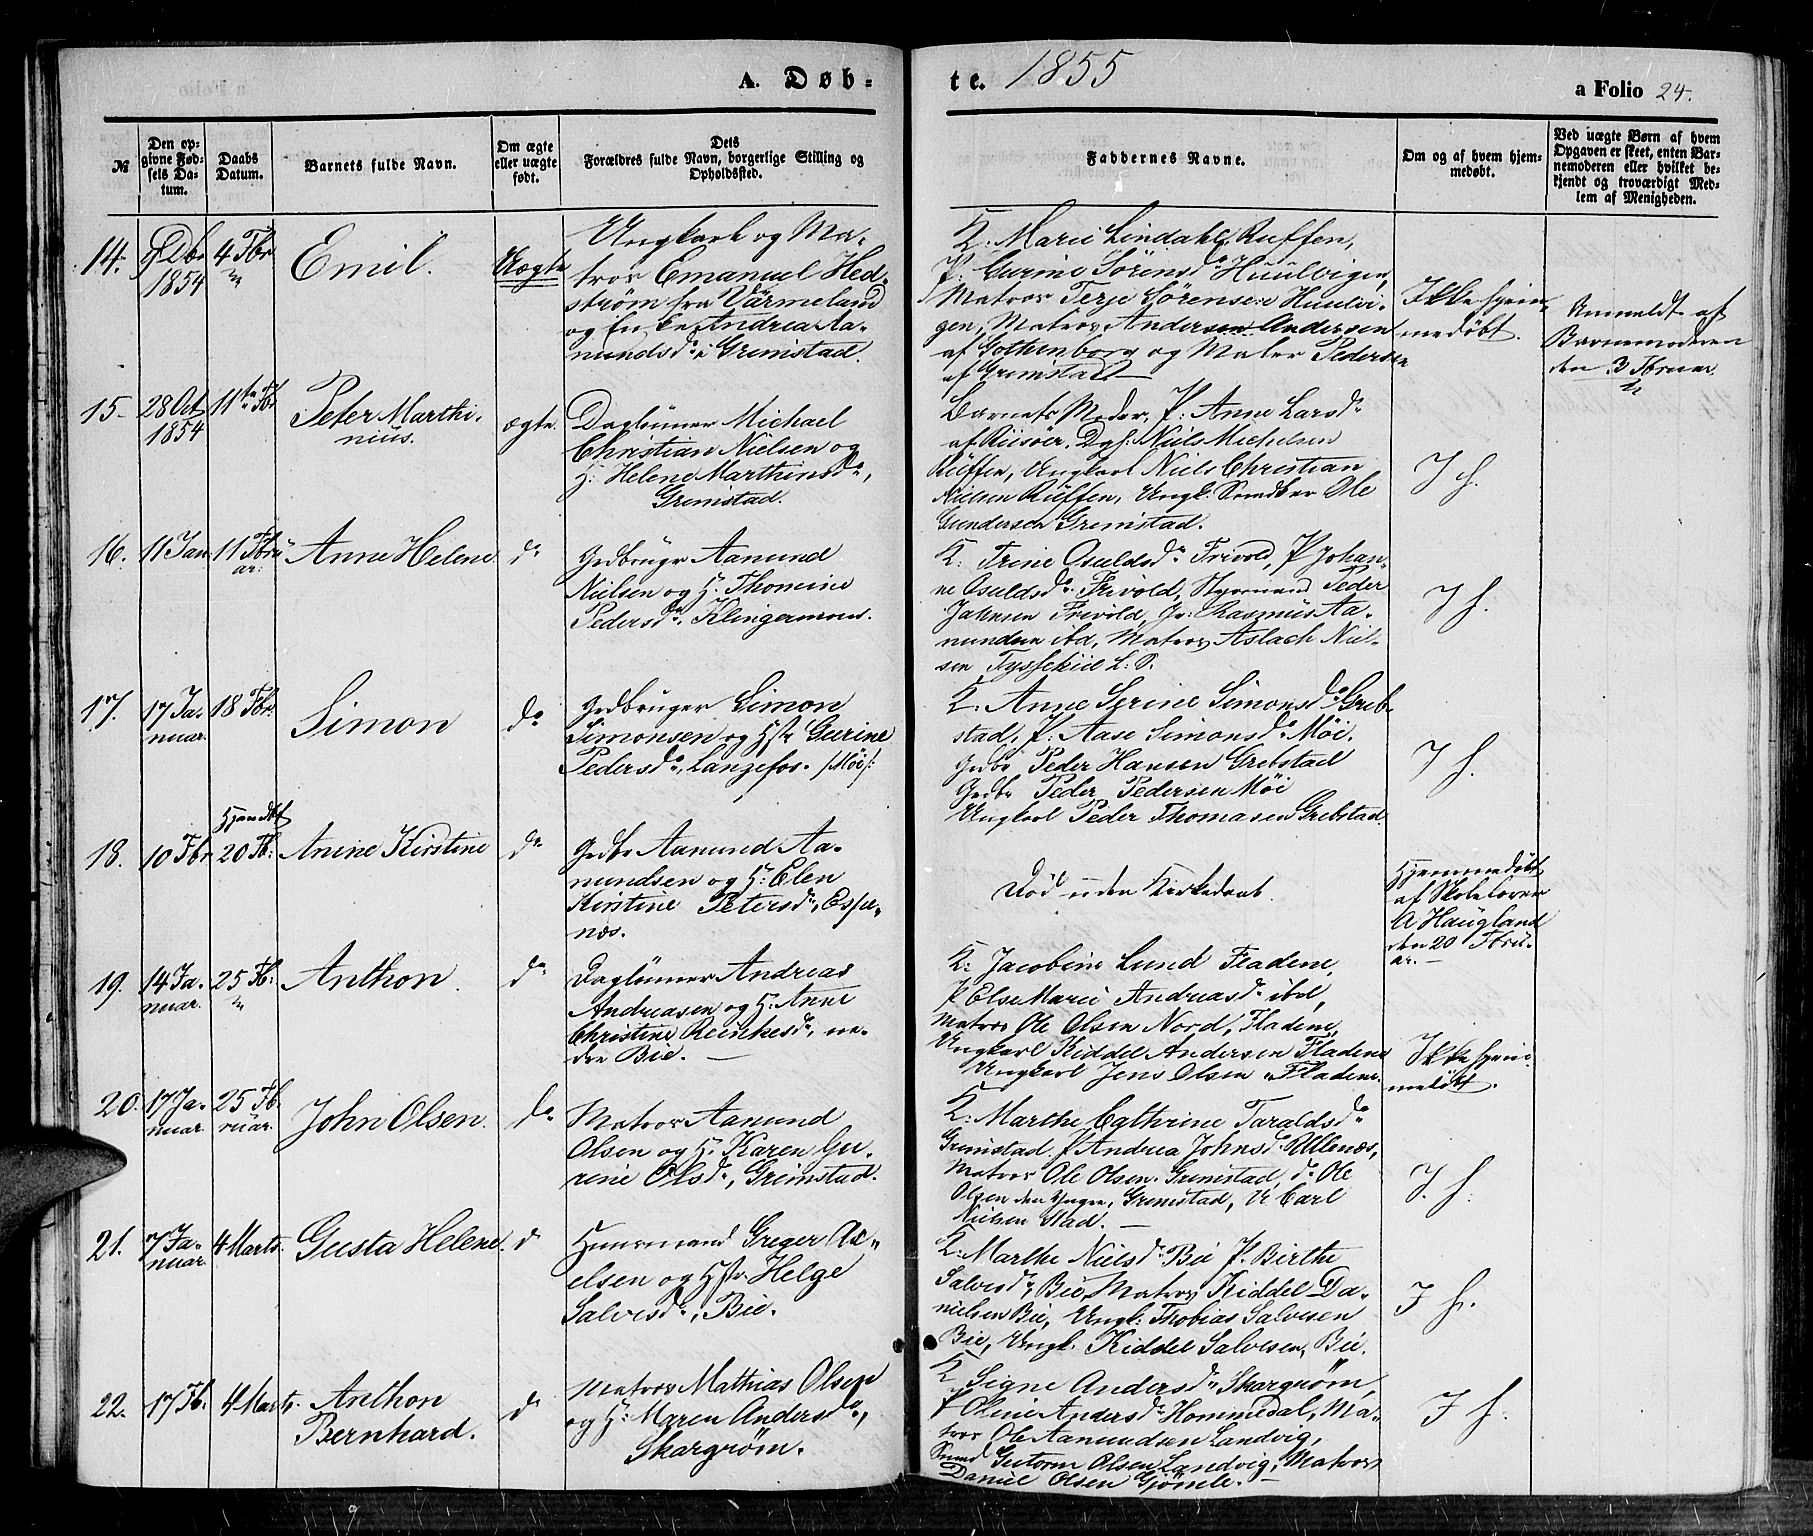 A. Døb-
te. 1855
a Folio 24.
№
Den op-
givne Fød-
sels Da-
tum.
Daabs
Datum.
Barnets fulde Navn.
Om ægte
eller uægte
født.
Dets
Forældres fulde Navn, borgerlige Stilling og
Opholdssted.
Faddernes Navne.
Om og af hvem hjem-
medøbt.
Ved uægte Børn af hvem
Opgaven er skeet, enten Bar-
nemoderen eller hvilket be-
kjendt og troværdigt Med-
lem af Menigheden.
14.
9 Dbr
1854
4 Fbr
Emil.
Uægte
Ungkarl og Ma-
tros Emanuel Hed-
strøm fra Värmeland
og Enke Andrea Aa-
nundsd. i Grimstad.
K: Marie Lindahl, Ruffen,
P: Gurine Sørensd. Huulvigen,
Matros Terje Sørensen Huulvi-
gen, Matros Andersen Andersen
af Gothenborg og Maler Pedersen
af Grimstad
Ikke hjem-
medøbt.
Anmeldt af
Barnemoderen
den 3 Fbruar
15.
28 Oct
1854
11te Fbr
Peter Marthi-
nius.
ægte.
Daglønner Michael
Christian Nielsen og
H: Helene Marthinsd.,
Grimstad.
Barnets Moder, P: Anne Larsd.
af Riisöer, Dgl: Niels Michelsen
Ruffen, Ungkarl Niels Christian
Nielsen Ruffen, Ungk. Snedker Ole
Gundersen Grimstad.
I h.
16.
11 Jan
11 Fbru-
ar.
Anne Helene
do
Grdbruger Aanund
Nielsen og H. Thomine
Pedersd. Klingermoen.
K: Trine Osuldsd. Frivold, P Johan-
ne Osuldsd. Frivold, Styrmand Peder
Jahnsen Frivold, Gr: Rasmus Aa-
nundsen ibd, Matros Aslach Niel-
sen Tyssekiil L. S.
I h.
17.
17 Ja-
nuar.
18 Fbr.
Simon
do
Grdbruger Simon
Simonsen og Hstr Gurine
Pedersd., Langefos. /Møi/:
K. Anne Serine Simonsd. Greb-
stad, P: Aase Simonsd. Møi.
Grdbr Peder Hansen Grebstad
Grdbr Peder Pedersen Møi
Ungkarl Peder Thomasen Grebstad.
I h.
18.
10 Fbr
Hjemdbt
20 Fb:
Anine Kirstine
do
Grdbr Aanund Aa-
nundsen og H: Elen
Kirstine Petersd., Espe-
næs.
Død uden Kirkedaab.
Hjemmedøbt
af Skolelærer
A Haugland
den 20 Fbru-
ar.
19.
14 Ja-
nuar.
25 Fb:
Anthon.
do
Daglønner Andreas
Andreasen og H. Anne
Christine Reinkesd., ne-
dre Bie.
K: Jacobine Lund Fladene,
P Else Marie Andreasd. ibd,
Matros Ole Olsen Nord, Fladene,
Ungkarl Kiddel Andersen Fladene
Ungkarl Jens Olsen Fladene.
Ikke hjem-
medøbt.
20.
17 Ja-
nuar.
25 Fb-
ruar.
John Olsen.
do
Matros Aanund
Olsen og H. Karen Gu-
rine Olsd., Grimstad.
K: Marthe Cathrine Taraldsd.
Grimstad, P Andrea Johnsd. Ullenæs,
Matros Ole Olsen Grimstad, do Ole
Olsen den Yngre, Grimstad, U Carl
Nielsen Stad.
I. h.
21.
7 Ja-
nuar.
4 Marts.
Gusta Helene.
d
Huusmand Greger
elsen og Hstr Helge
Salvesd., Bie.
K: Marthe Nielsd. Bie P. Birthe
Salvesd. Bie, Matros Kiddel Da-
nielsen Bie, Ungk: Thobias Salvesen
Bie, Ungk. Kiddel Salvesen, Bie.
I h.
22.
17 Fb.
4 Marts.
Anthon
Bernhard.
d
Matros Mathias Olsen
og H: Maren Andersd.,
Skargrøm.
K Signe Andersd. Skargrøm,
P Oline Andersd. Hommedal, Ma-
tros Ole Aanundsen Landvig,
Smed Gutorm Olsen Landvig, Matros
Daniel Olsen Gjømle.
I h.